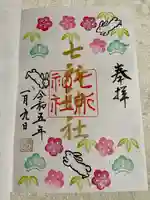 奉拝
七所神社
七所
神社
令和五年
一月九日